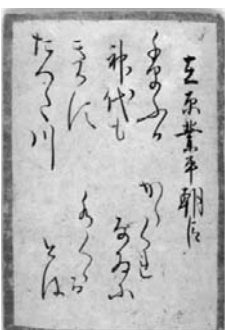 在原業平朝臣
千早ふる
神代も
きかす
たつた川
からくれ
なゐに
水くゝる
とは